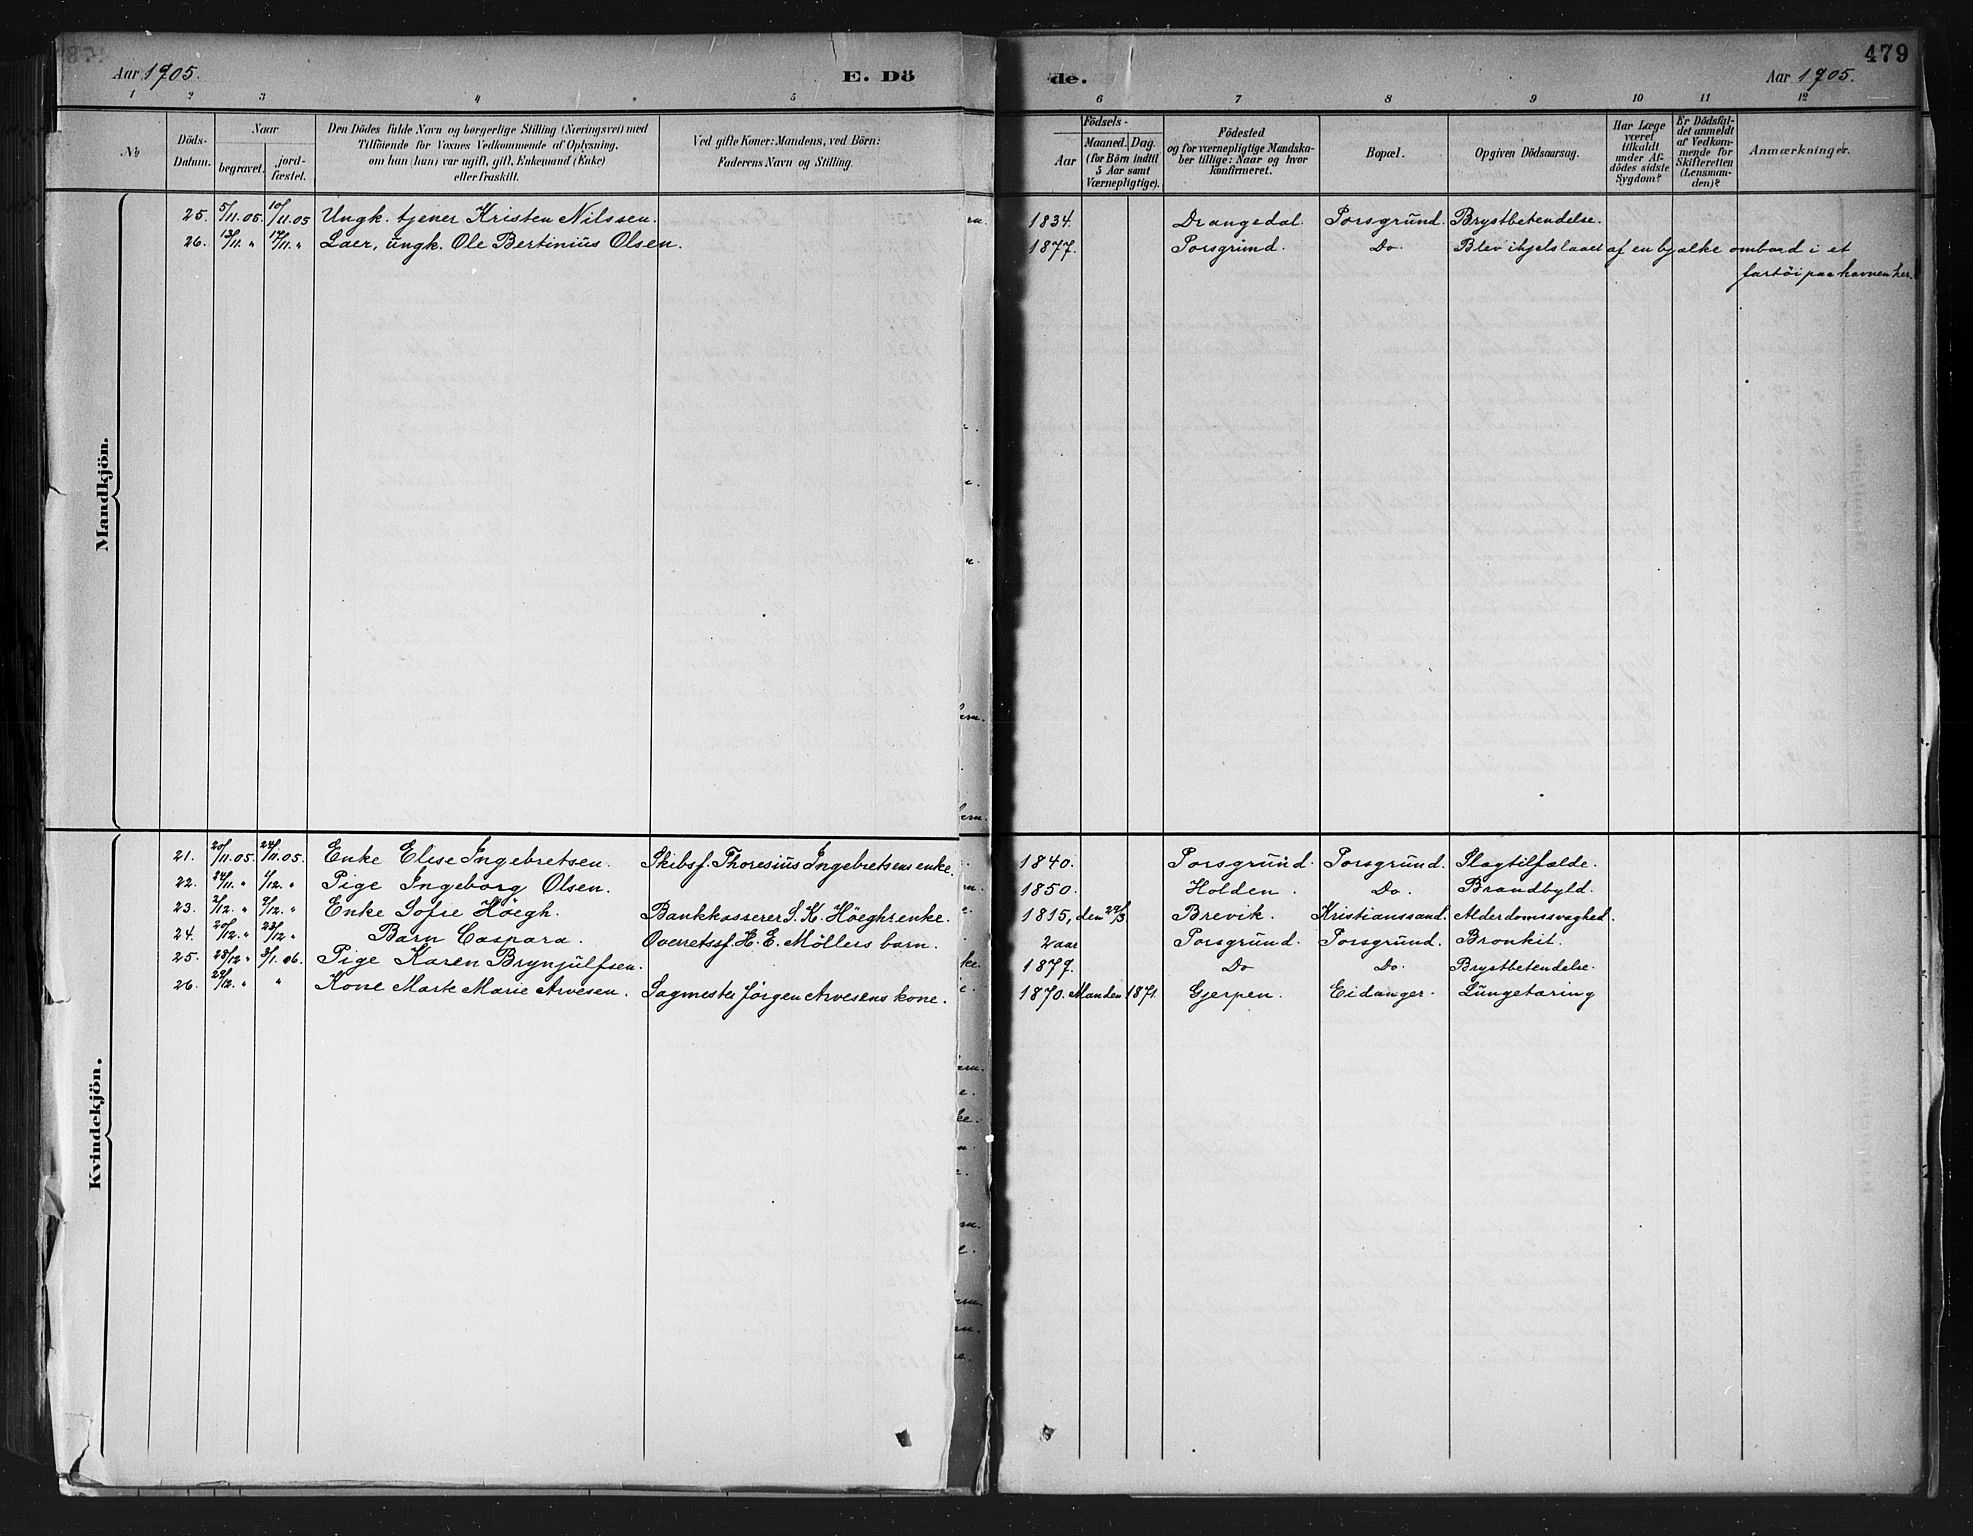 Aar 1905. E. Dö de. Aar 1905. 479
1 2 3 4 5 6 7 8 9 10 11 12
No
Döds-Datum.
Naar
begravet.
jordfæstet.
Den Dödes fulde Navn og borgerlige Stilling (Næringsvei) med
Tilföiende for Voxnes Vedkommende af Oplysning,
om han (hun) var ugift, gift, Enkemand (Enke)
eller fraskilt.
Ved gifte Koner: Mandens, ved Börn:
Faderens Navn og Stilling.
Födsels-
Aar
Maaned. Dag.
(for Börn indtil
5 Aar samt
Værnepligtige).
Födested
og for værnepligtige Mandska-
ber tillige: Naar og hvor
konfirmeret.
Bopæl.
Opgiven Dödsaarsag.
Har Læge
været
tilkaldt
under Af-
dödes sidste
Sygdom?
Er Dödsfal-
det anmeldt
af Vedkom-
mende for
Skifteretten
(Lensman-
den)?
Anmærkninger.
Mandkjön.
25. 5/11.05. 10/11.05 Ungk. tjener Kristen Nilssen. 1834. Drangedal. Porsgrund. Brystbetendelse.
26. 13/11. " 17/11. " Laer, ungk. Ole Bertinius Olsen. 1877. Porsgrund. Do. Blev ihjelslaaet af en bjælke ombord i et
fartöi paa havnen her.
Kvindekjön.
21. 20/11.05. 24/11.05. Enke Elise Ingebretsen. Skibsf. Thoresius Ingebretsens enke. 1840. Porsgrund. Porsgrund. Slagtilfælde.
22. 24/11. " 1/12. " Pige Ingeborg Olsen. 1850. Holden. Do. Brandbyld.
23. 2/12. " 9/12. " Enke Sofie Höegh. Bankkasserer S. K. Höeghs enke. 1815, den 29/3 Brevik. Kristianssand. Alderdomssvaghed.
24. 20/12. " 23/12 " Barn Caspara. Overretssf. H. E. Möllers barn. 2 aar Porsgrund. Porsgrund. Bronkit.
25. 28/12 " 3/1.06. Pige Karen Brynjulfsen. 1879. Do Do. Brystbetendelse.
26. 29/12. " " Kone Marte Marie Arvesen. Sagmester Jörgen Arvesens kone. 1870. Manden 1871. Gjerpen. Eidanger. Lungetæring